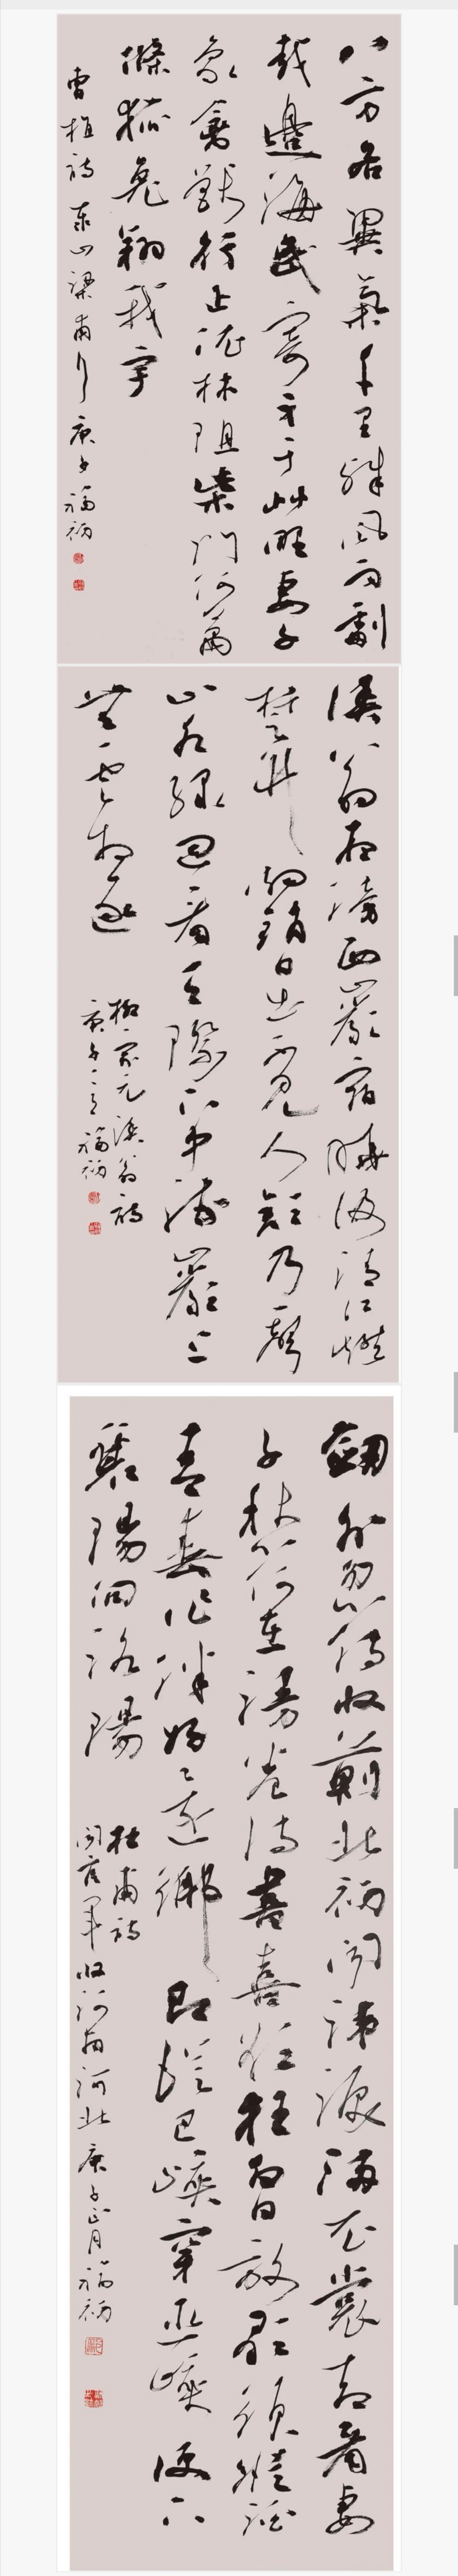 八方各異氣千里殊風雨劇
哉邊海民寄身于艸野妻子
象禽獸行止依林阻柴門何蕭
條狐兔翔我宇
曹植詩 泰山梁甫行 庚子 福
漁翁夜傍西巖宿曉汲清江燃
楚竹烟銷日出不見人欸乃一聲
山水綠迴看天際下中流巖上
無心雲相逐
柳宗元漁翁詩
庚子 福
劍外忽傳收薊北初聞涕淚滿衣裳却看妻
子愁何在漫卷詩書喜欲狂白日放歌須縱酒
青春作伴好還鄉即從巴峽穿巫峽便下
襄陽向洛陽
杜甫詩
聞官軍收河南河北庚子正月福